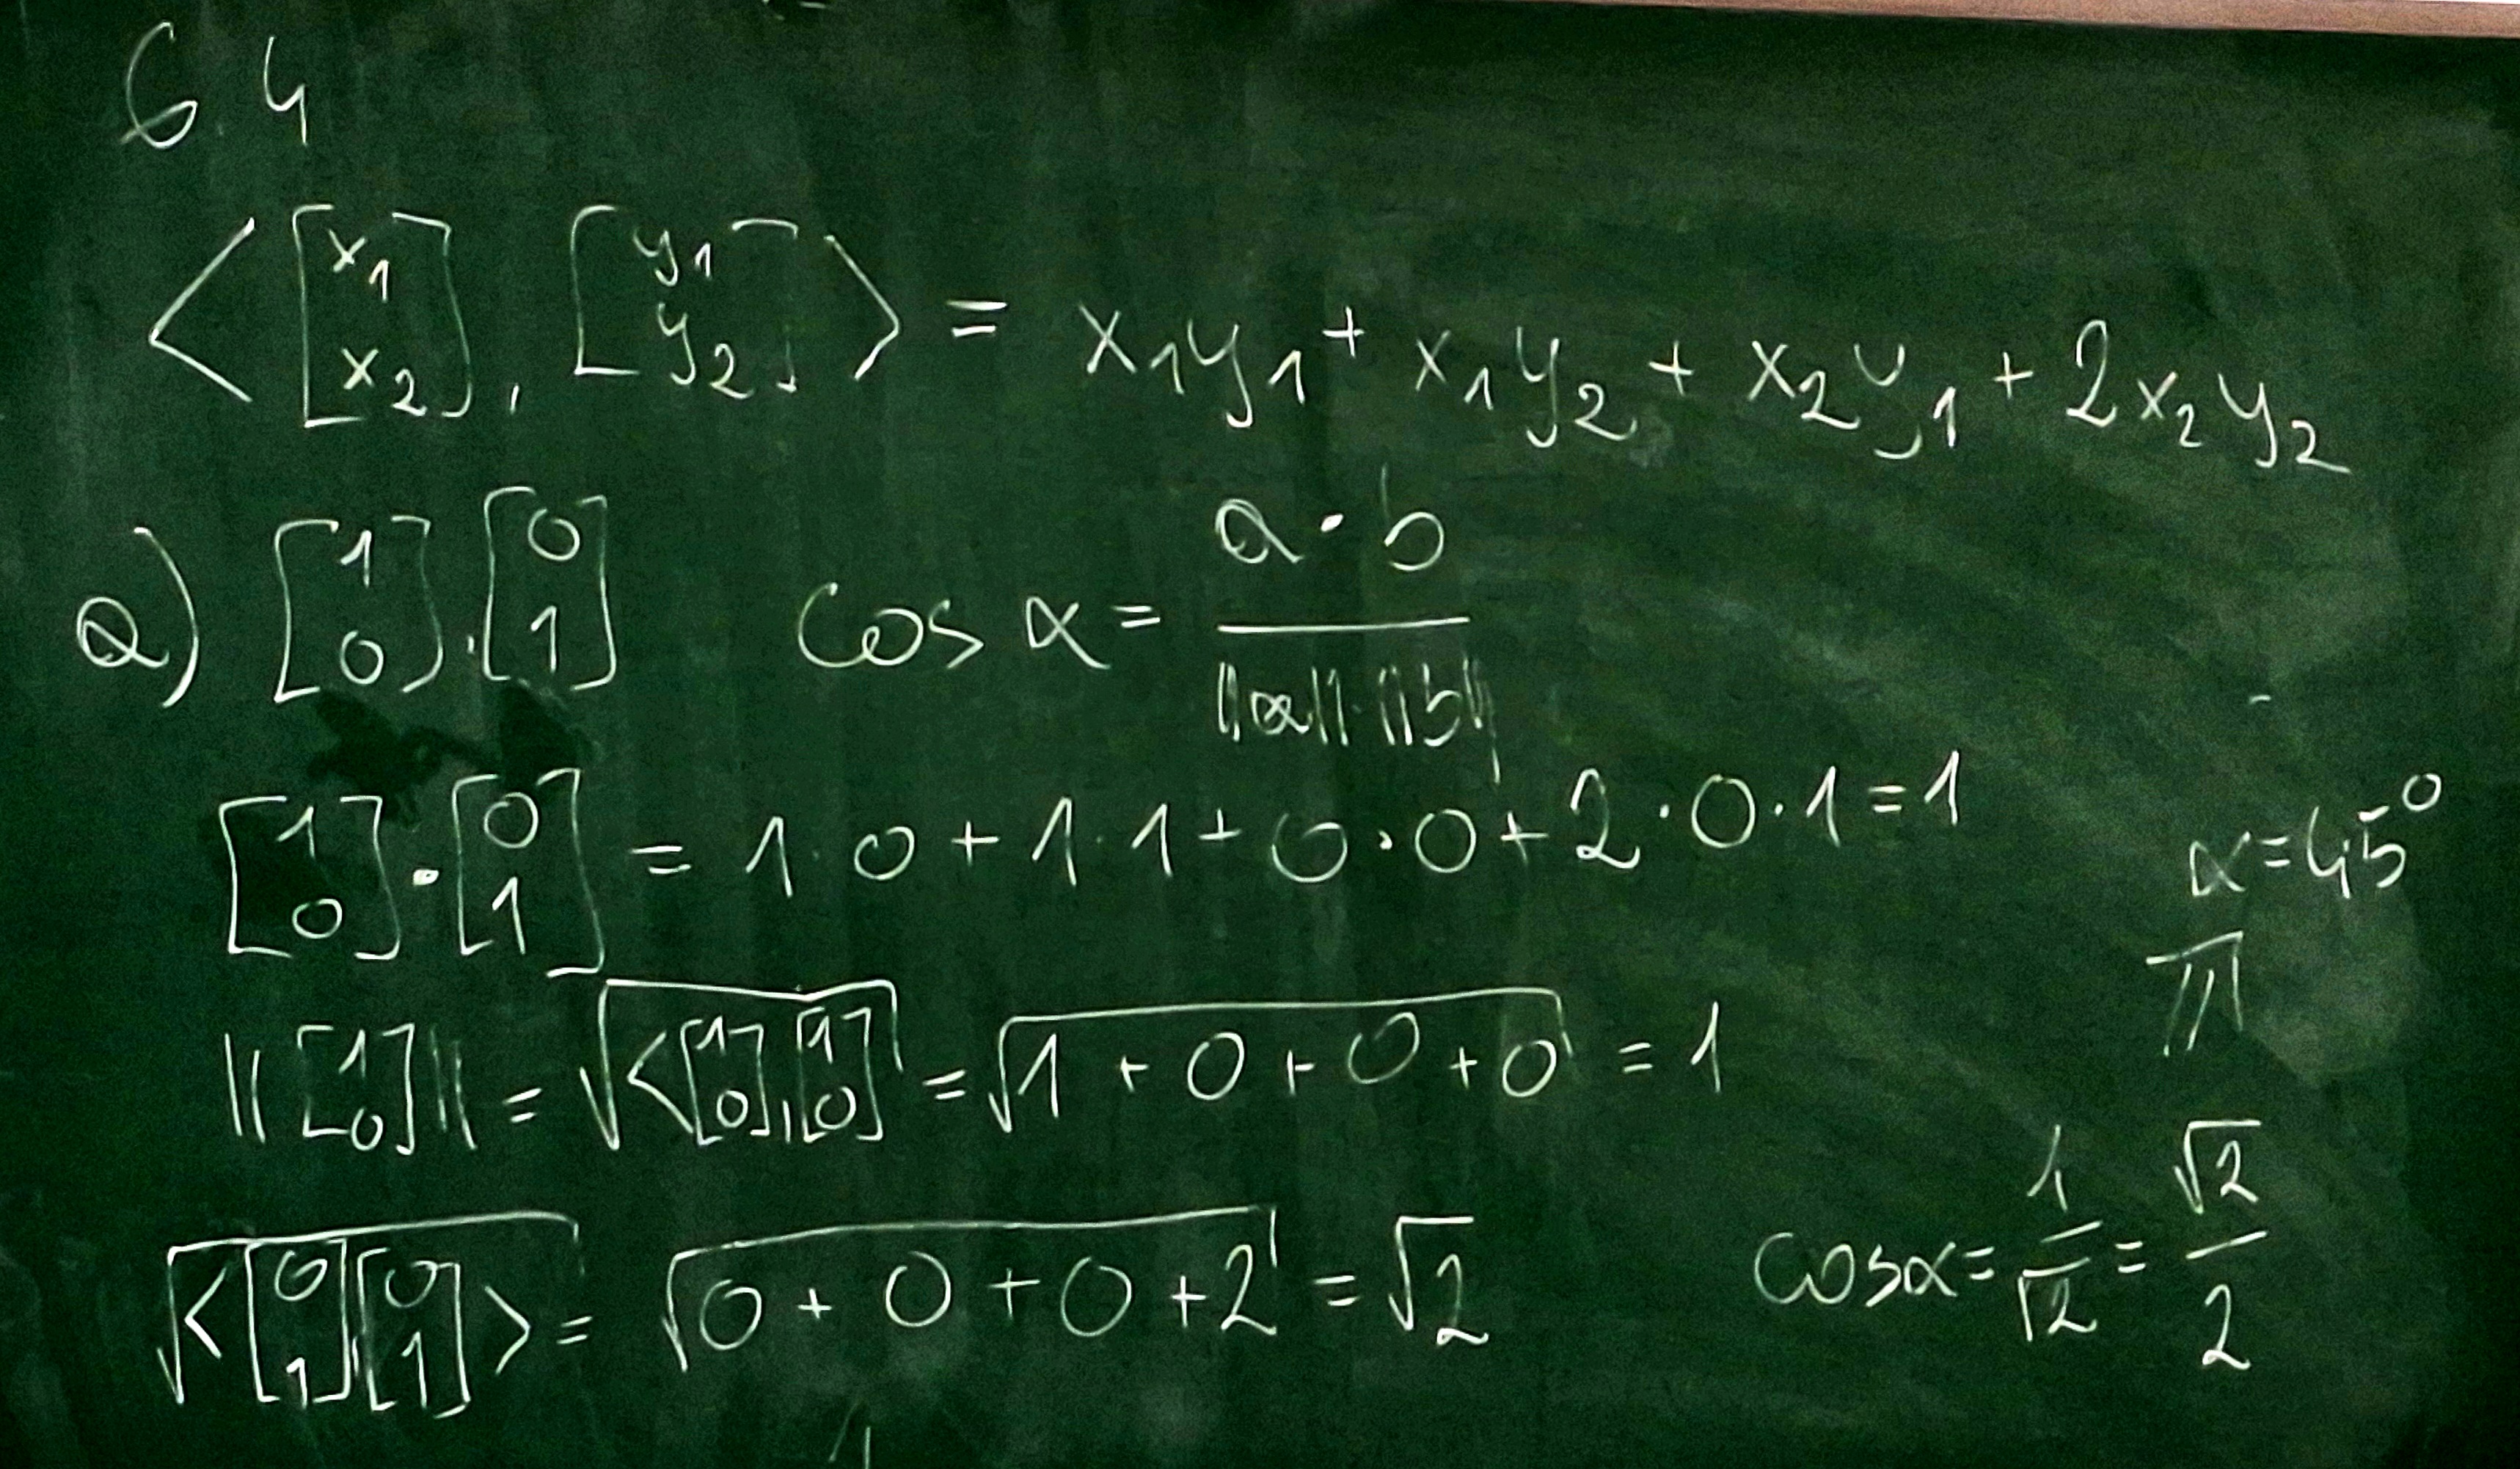 6.4
< [x₁ x₂] , [y₁ y₂] > = x₁y₁ + x₁y₂ + x₂y₁ + 2x₂y₂
a) [1 0] , [0 1] cos α = a · b / ||a|| · ||b||
[1 0] · [0 1] = 1 · 0 + 1 · 1 + 0 · 0 + 2 · 0 · 1 = 1
α = 45°
π
|| [1 0] || = √< [1 0] , [1 0] = √1 + 0 + 0 + 0 = 1
√< [0 1] , [0 1] > = √0 + 0 + 0 + 2 = √2
cos α = 1/√2 = √2/2